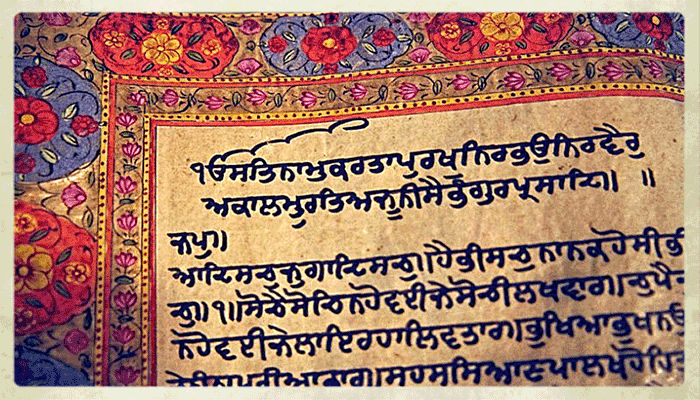 ੴਸਤਿਨਾਮੁਕਰਤਾਪੁਰਖੁਨਿਰਭਉਨਿਰਵੈਰੁ
ਅਕਾਲਮੂਰਤਿਅਜੂਨੀਸੈਭੰਗੁਰਪ੍ਰਸਾਦਿ॥ ॥
ਜਪੁ॥
ਆਦਿਸਚੁਜੁਗਾਦਿਸਚੁ॥ਹੈਭੀਸਚੁਨਾਨਕਹੋਸੀਭੀ
ਚੁ॥੧॥ਸੋਚੈਸੋਚਿਨਹੋਵਈਜੇਸੋਚੀਲਖਵਾਰ॥ਚੁਪੈਚ
ਨਹੋਵਈਜੇਲਾਇਰਹਾਲਿਵਤਾਰ॥ਭੁਖਿਆਭੁਖਨਉ
ਪੁਰੀਆਭਾਰ॥ਸਹਸਸਿਆਣਪਾਲਖਹੋਹਿਤ